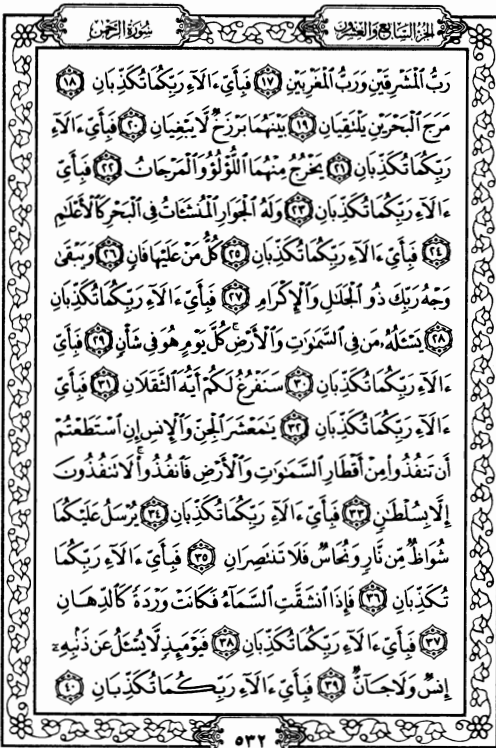 الجزء السابع والعشرون
سورة الرحمن
رَبُّ الْمَشْرِقَيْنِ وَرَبُّ الْمَغْرِبَيْنِ ١٧ فَبِأَيِّ ءَالَآءِ رَبِّكُمَا تُكَذِّبَانِ ١٨
مَرَجَ الْبَحْرَيْنِ يَلْتَقِيَانِ ١٩ بَيْنَهُمَا بَرْزَخٌ لَّا يَبْغِيَانِ ٢٠ فَبِأَيِّ ءَالَآءِ
رَبِّكُمَا تُكَذِّبَانِ ٢١ يَخْرُجُ مِنْهُمَا اللُّؤْلُؤُ وَالْمَرْجَانُ ٢٢ فَبِأَيِّ
ءَالَآءِ رَبِّكُمَا تُكَذِّبَانِ ٢٣ وَلَهُ الْجَوَارِ الْمُنشَـَٔاتُ فِي الْبَحْرِ كَالْأَعْلَٰمِ
٢٤ فَبِأَيِّ ءَالَآءِ رَبِّكُمَا تُكَذِّبَانِ ٢٥ كُلُّ مَنْ عَلَيْهَا فَانٍ ٢٦ وَيَبْقَىٰ
وَجْهُ رَبِّكَ ذُو الْجَلَٰلِ وَالْإِكْرَامِ ٢٧ فَبِأَيِّ ءَالَآءِ رَبِّكُمَا تُكَذِّبَانِ
٢٨ يَسْـَٔلُهُۥ مَن فِي السَّمَٰوَٰتِ وَالْأَرْضِ ۚ كُلَّ يَوْمٍ هُوَ فِي شَأْنٍ ٢٩ فَبِأَيِّ
ءَالَآءِ رَبِّكُمَا تُكَذِّبَانِ ٣٠ سَنَفْرُغُ لَكُمْ أَيُّهَ الثَّقَلَانِ ٣١ فَبِأَيِّ
ءَالَآءِ رَبِّكُمَا تُكَذِّبَانِ ٣٢ يَٰمَعْشَرَ الْجِنِّ وَالْإِنسِ إِنِ اسْتَطَعْتُمْ
أَن تَنفُذُوا مِنْ أَقْطَارِ السَّمَٰوَٰتِ وَالْأَرْضِ فَانفُذُوا ۚ لَا تَنفُذُونَ
إِلَّا بِسُلْطَٰنٍ ٣٣ فَبِأَيِّ ءَالَآءِ رَبِّكُمَا تُكَذِّبَانِ ٣٤ يُرْسَلُ عَلَيْكُمَا
شُوَاظٌ مِّن نَّارٍ وَنُحَاسٌ فَلَا تَنتَصِرَانِ ٣٥ فَبِأَيِّ ءَالَآءِ رَبِّكُمَا
تُكَذِّبَانِ ٣٦ فَإِذَا انشَقَّتِ السَّمَآءُ فَكَانَتْ وَرْدَةً كَالدِّهَانِ
٣٧ فَبِأَيِّ ءَالَآءِ رَبِّكُمَا تُكَذِّبَانِ ٣٨ فَيَوْمَئِذٍ لَّا يُسْـَٔلُ عَن ذَنۢبِهِۦٓ
إِنسٌ وَلَا جَآنٌّ ٣٩ فَبِأَيِّ ءَالَآءِ رَبِّكُمَا تُكَذِّبَانِ ٤٠
٥٣٢